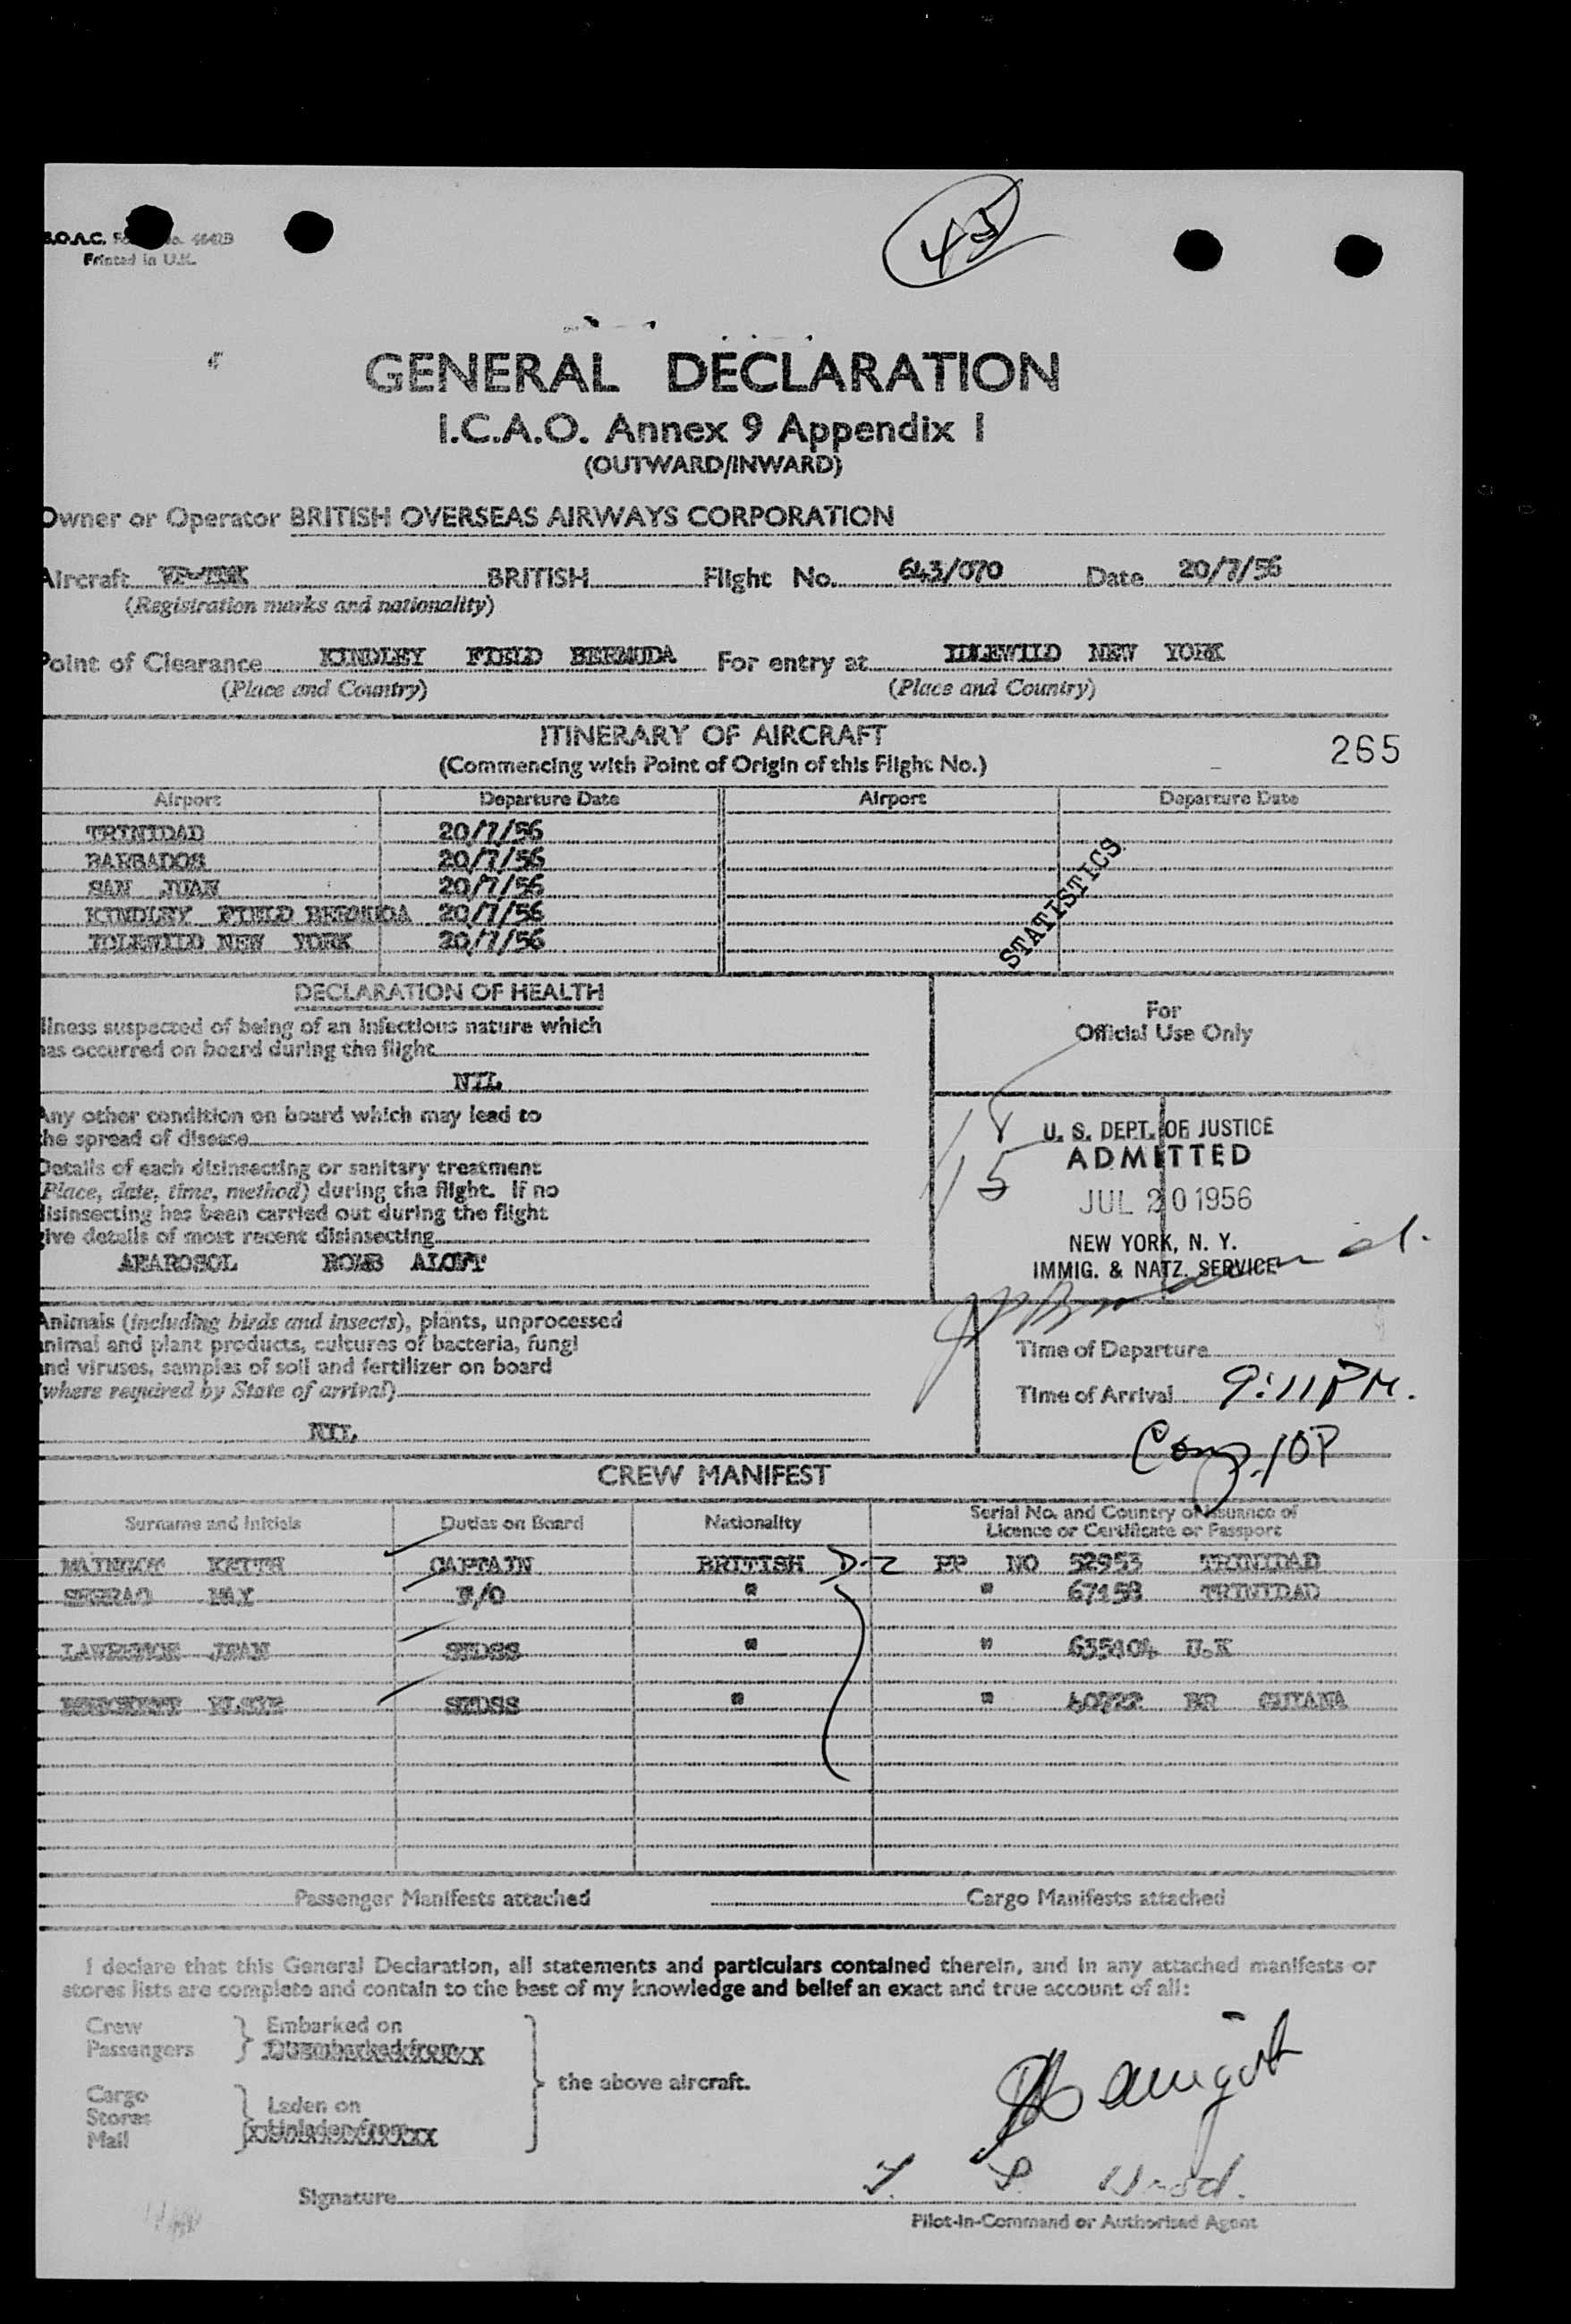 B.O.A.C. No. 4642B
Printed in U.K.
45
GENERAL DECLARATION
I.C.A.O. Annex 9 Appendix I
(OUTWARD/INWARD)
Owner or Operator BRITISH OVERSEAS AIRWAYS CORPORATION
Aircraft BRITISH Flight No. 643/070 Date 20/7/56
(Registration marks and nationality)
Point of Clearance KINDLEY FIELD BERMUDA For entry at IDLEWILD NEW YORK
(Place and Country) (Place and Country)
ITINERARY OF AIRCRAFT
265
(Commencing with Point of Origin of this Flight No.)
Airport Departure Date Airport Departure Date
TRINIDAD 20/7/56
BARBADOS 20/7/56
SAN JUAN 20/7/56
KINDLEY FIELD BERMUDA 20/7/56
IDLEWILD NEW YORK 20/7/56
STATISTICS
DECLARATION OF HEALTH
llness suspected of being of an infectious nature which
has occurred on board during the flight
NIL
Any other condition on board which may lead to
the spread of disease
Details of each disinsecting or sanitary treatment
(Place, date, time, method) during the flight. If no
disinsecting has been carried out during the flight
give details of most recent disinsecting
AEAROSOL BOMB ALOFT
For
Official Use Only
15
U. S. DEPT. OF JUSTICE
ADMITTED
JUL 20 1956
NEW YORK, N. Y.
IMMIG. & NATZ. SERVICE
Animals (including birds and insects), plants, unprocessed
animal and plant products, cultures of bacteria, fungi
and viruses, samples of soil and fertilizer on board
(where required by State of arrival)
NIL
Time of Departure
Time of Arrival 9:11 PM.
10P
CREW MANIFEST
Surname and Initials Duties on Board Nationality Serial No. and Country of Issuance of
Licence or Certificate or Passport
MAINGOT KEITH CAPTAIN BRITISH D-2 PP NO 52953 TRINIDAD
MAX F/O " " 67158 TRINIDAD
LAWRENCE JEAN STDSS " " 635404 U.K
ELSIE STDSS " " 40722 BR GUIANA
Passenger Manifests attached Cargo Manifests attached
I declare that this General Declaration, all statements and particulars contained therein, and in any attached manifests or
stores lists are complete and contain to the best of my knowledge and belief an exact and true account of all:
Crew
Passengers
Embarked on
Disembarked from
Cargo
Stores
Mail
Laden on
Unladen from
the above aircraft.
Signature
Pilot-in-Command or Authorised Agent